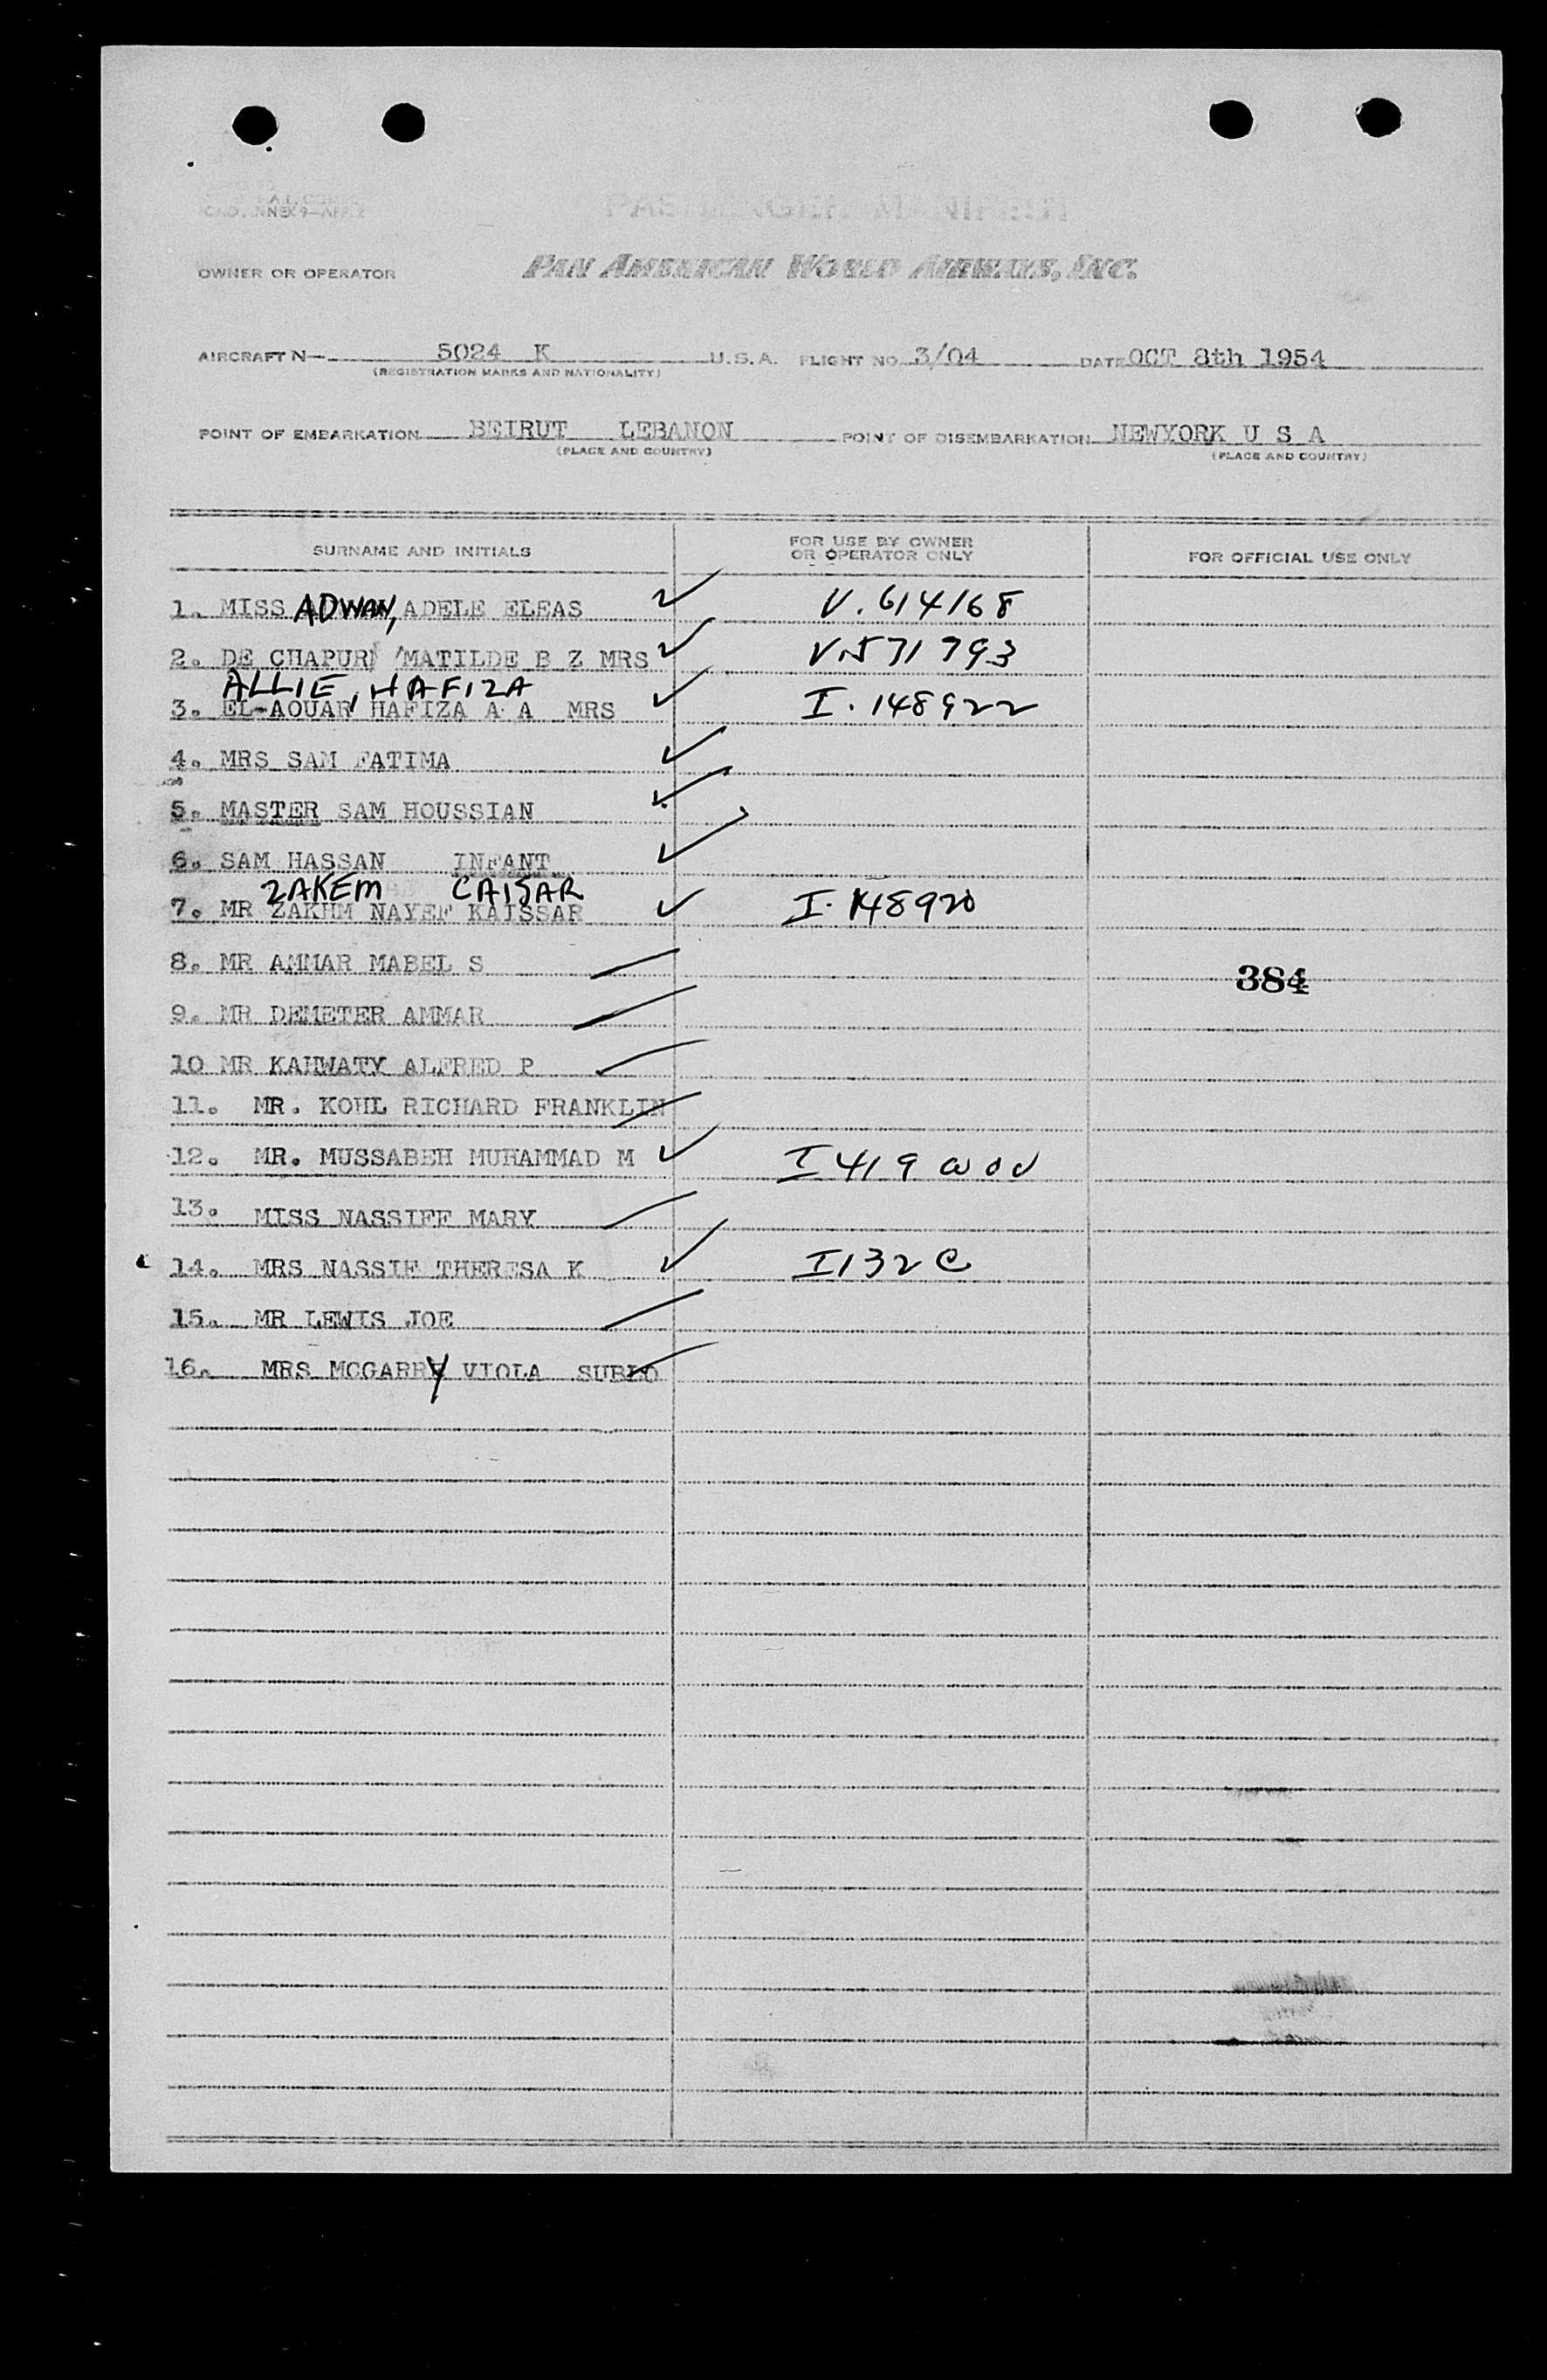 PASSENGER MANIFEST
ANNEX 9—APP. 2
OWNER OR OPERATOR PAN AMERICAN WORLD AIRWAYS, INC.
AIRCRAFT N— 5024 K U.S.A. FLIGHT NO 3/04 DATE OCT 8th 1954
(REGISTRATION MARKS AND NATIONALITY)
POINT OF EMBARKATION BEIRUT LEBANON POINT OF DISEMBARKATION NEWYORK U S A
(PLACE AND COUNTRY) (PLACE AND COUNTRY)
SURNAME AND INITIALS FOR USE BY OWNER OR OPERATOR ONLY FOR OFFICIAL USE ONLY
1. MISS ADWAN, ADELE ELEAS V. 614168
2. DE CHAPUR MATILDE B Z MRS V.571793
ALLIE, HAFIZA
3. EL-AOUAR HAFIZA A A MRS I. 148922
4. MRS SAM FATIMA
5. MASTER SAM HOUSSIAN
6. SAM HASSAN INFANT
ZAKEM CAISAR
7. MR ZAKHM NAYEF KAISSAR I. 148920
8. MR AMMAR MABEL S
384
9. MR DEMETER AMMAR
10 MR KAHWATY ALFRED P
11. MR. KOHL RICHARD FRANKLIN
12. MR. MUSSABEH MUHAMMAD M I 419
13. MISS NASSIFF MARY
14. MRS NASSIF THERESA K I 132 C
15. MR LEWIS JOE
16. MRS MCGARRY VIOLA